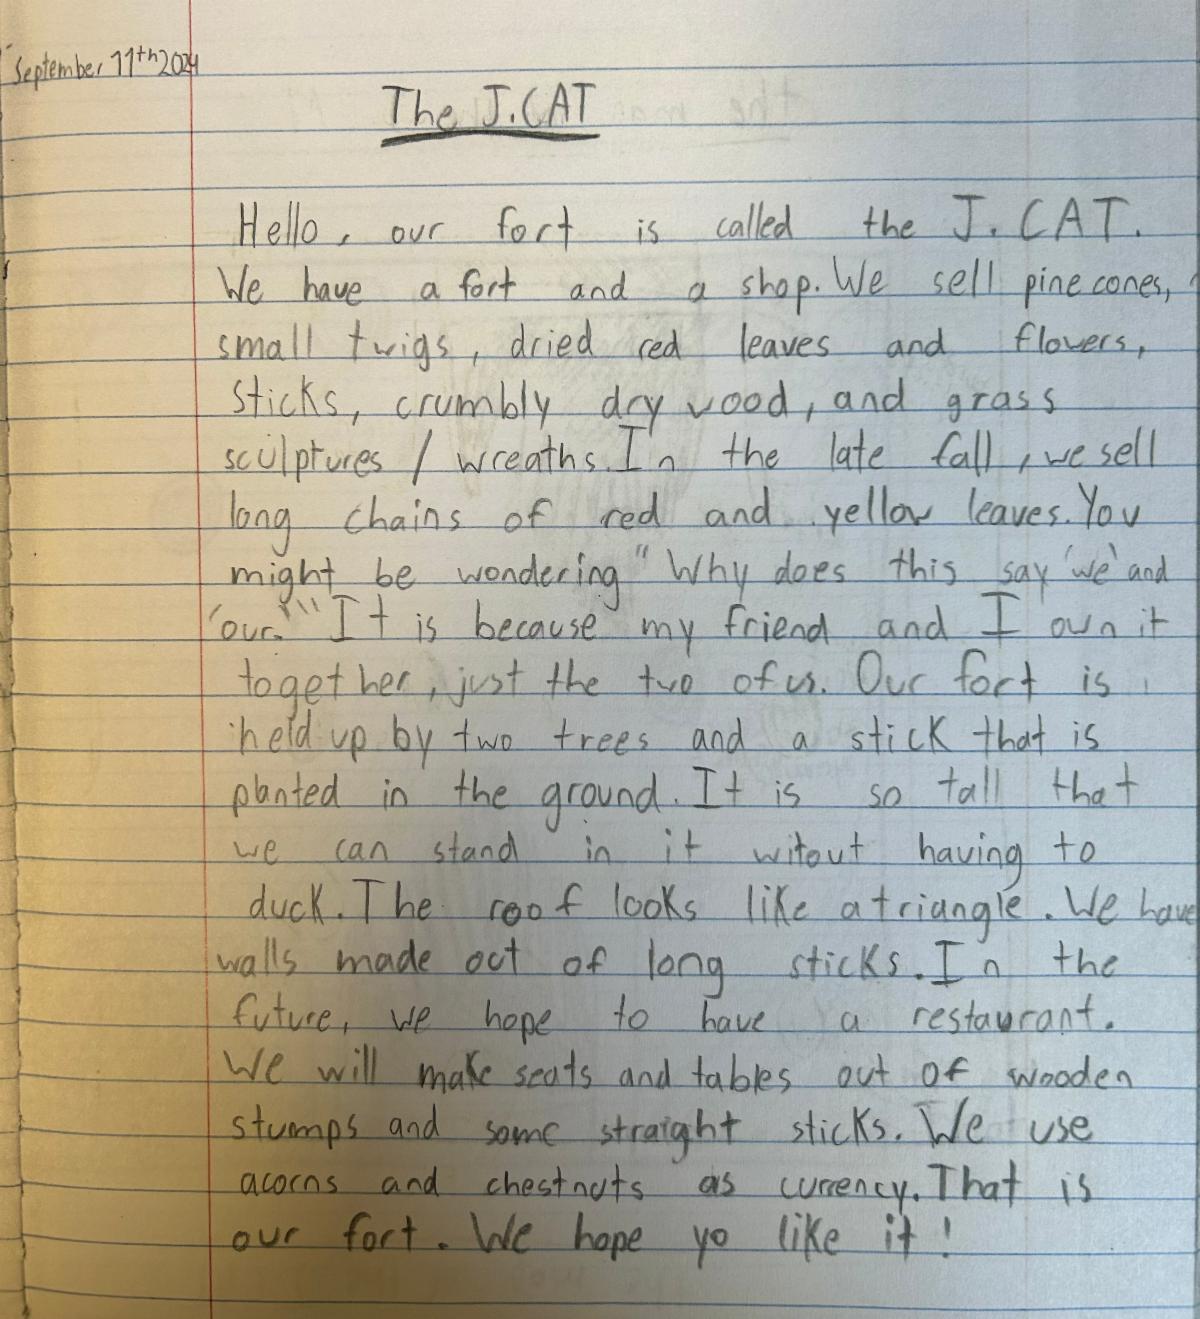 September 11th 2024
The J.CAT
Hello, our fort is called the J.CAT.
We have a fort and a shop. We sell pine cones,
small twigs, dried red leaves and flowers,
sticks, crumbly dry wood, and grass
sculptures / wreaths. In the late fall, we sell
long chains of red and yellow leaves. You
might be wondering "Why does this say 'we' and
'our.'" It is because my friend and I own it
together, just the two of us. Our fort is
held up by two trees and a stick that is
planted in the ground. It is so tall that
we can stand in it witout having to
duck. The roof looks like a triangle. We have
walls made out of long sticks. In the
future, we hope to have a restaurant.
We will make seats and tables out of wooden
stumps and some straight sticks. We use
acorns and chestnuts as currency. That is
our fort. We hope yo like it!